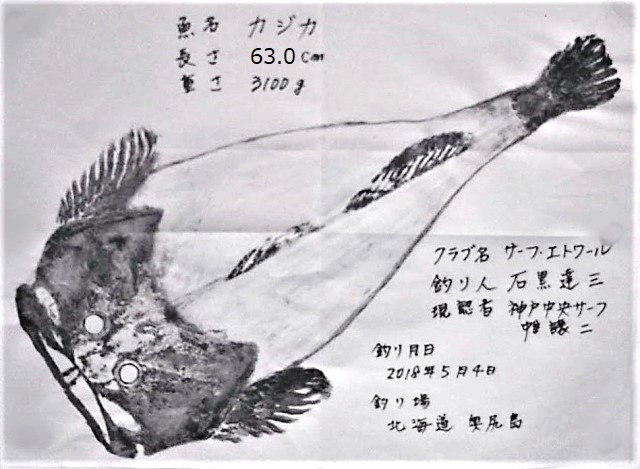 魚名 カジカ
長さ 63.0 cm
重さ 3100g
クラブ名 サーフ・エトワール
釣り人 石黒達三
現認者 神戸中央サーフ
釣り月日
2018年5月4日
釣り場
北海道 奥尻島